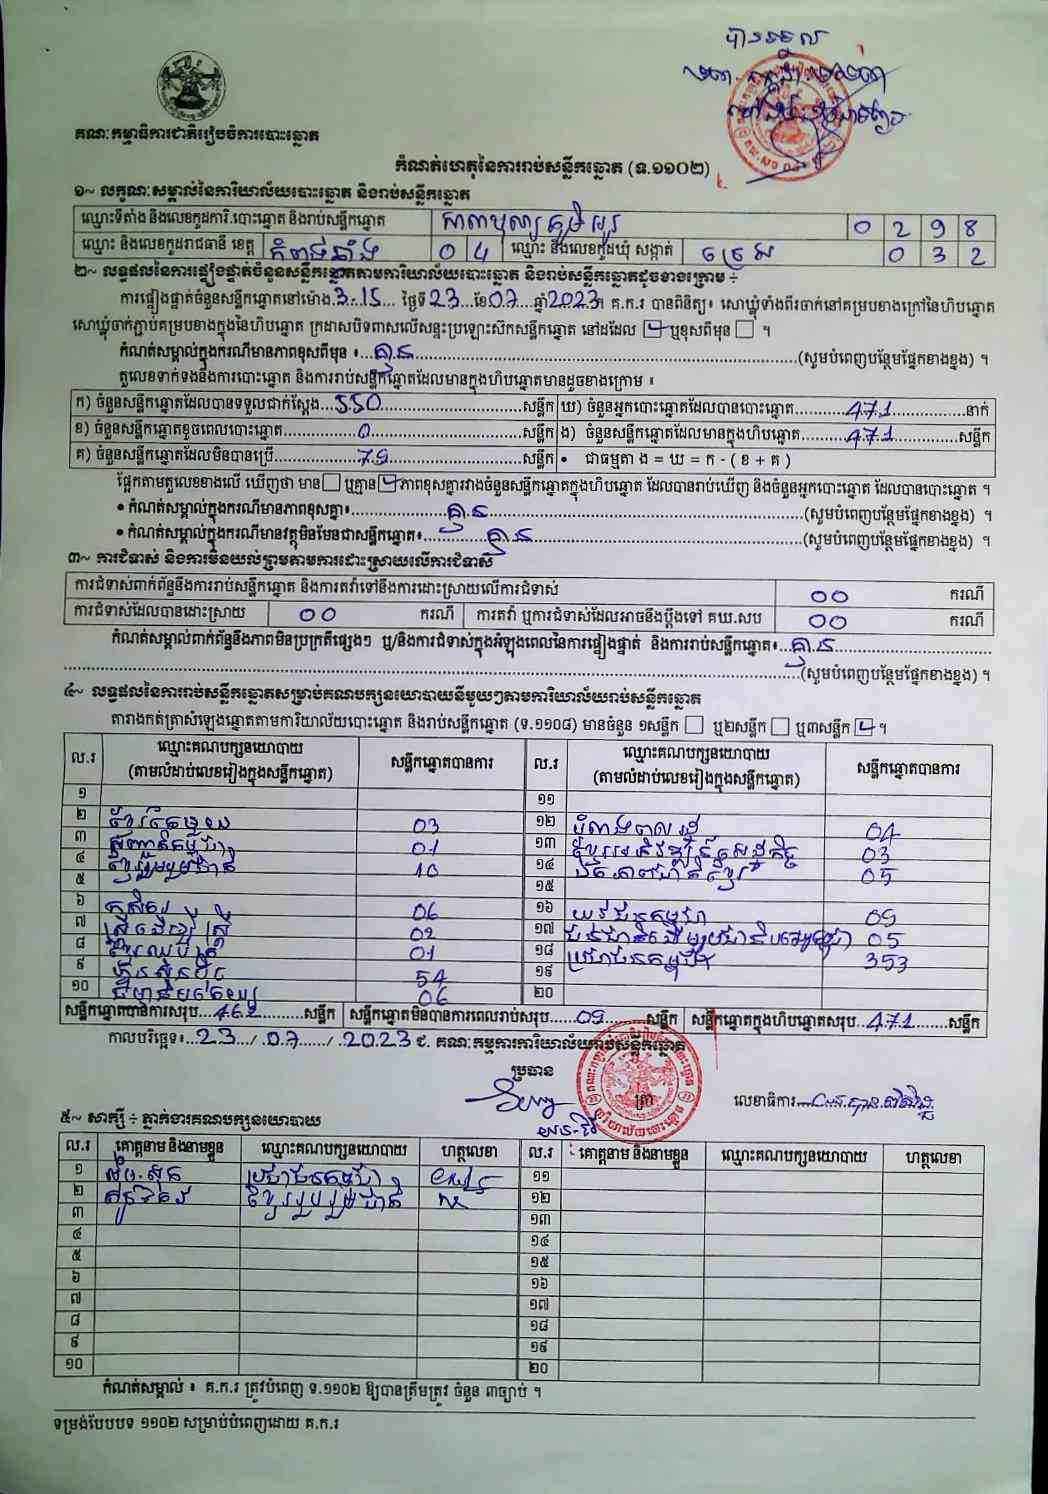 គណៈកម្មាធិការជាតិរៀបចំការបោះឆ្នោត
កំណត់ហេតុនៃការរាប់សន្លឹកឆ្នោត (ទ.១១០២)
១~ លក្ខណៈសម្គាល់នៃការិយាល័យបោះឆ្នោត និងរាប់សន្លឹកឆ្នោត
ឈ្មោះទីតាំង និងលេខកូដការិ.បោះឆ្នោត និងរាប់សន្លឹកឆ្នោត 0 2 9 8
ឈ្មោះ និងលេខកូដរាជធានី ខេត្ត កំពង់ឆ្នាំង 0 4 ឈ្មោះ និងលេខកូដឃុំ សង្កាត់ 0 3 2
២~ លទ្ធផលនៃការផ្ទៀងផ្ទាត់ចំនួនសន្លឹកឆ្នោតតាមការិយាល័យបោះឆ្នោត និងរាប់សន្លឹកឆ្នោតដូចខាងក្រោម ÷
ការផ្ទៀងផ្ទាត់ចំនួនសន្លឹកឆ្នោតនៅម៉ោង 3:15 ថ្ងៃទី 23 ខែ 07 ឆ្នាំ 2023 ។ គ.ក.រ បានពិនិត្យ៖ សោឃ្លុំទាំងពីរចាក់នៅគម្របខាងក្រៅនៃហិបឆ្នោត
សោឃ្លុំចាក់ភ្ជាប់គម្របខាងក្នុងនៃហិបឆ្នោត ក្រដាសបិទពាសលើសន្ទះប្រឡោះសឹកសន្លឹកឆ្នោត នៅដដែល ឬខុសពីមុន ។
កំណត់សម្គាល់ក្នុងករណីមានភាពខុសពីមុន ៖ គ្មាន (សូមបំពេញបន្ថែមផ្នែកខាងខ្នង) ។
តួលេខទាក់ទងនឹងការបោះឆ្នោត និងការរាប់សន្លឹកឆ្នោតដែលមានក្នុងហិបឆ្នោតមានដូចខាងក្រោម ៖
ក) ចំនួនសន្លឹកឆ្នោតដែលបានទទួលជាក់ស្តែង 550 សន្លឹក ឃ) ចំនួនអ្នកបោះឆ្នោតដែលបានបោះឆ្នោត 471 នាក់
ខ) ចំនួនសន្លឹកឆ្នោតខូចពេលបោះឆ្នោត 0 សន្លឹក ង) ចំនួនសន្លឹកឆ្នោតដែលមានក្នុងហិបឆ្នោត 471 សន្លឹក
គ) ចំនួនសន្លឹកឆ្នោតដែលមិនបានប្រើ 79 សន្លឹក • ជាធម្មតា ង = ឃ = ក - ( ខ + គ )
ផ្អែកតាមតួលេខខាងលើ ឃើញថា មាន ឬគ្មាន ភាពខុសគ្នារវាងចំនួនសន្លឹកឆ្នោតក្នុងហិបឆ្នោត ដែលបានរាប់ឃើញ និងចំនួនអ្នកបោះឆ្នោត ដែលបានបោះឆ្នោត ។
• កំណត់សម្គាល់ក្នុងករណីមានភាពខុសគ្នា៖ គ្មាន (សូមបំពេញបន្ថែមផ្នែកខាងខ្នង) ។
• កំណត់សម្គាល់ក្នុងករណីមានវត្ថុមិនមែនជាសន្លឹកឆ្នោត៖ គ្មាន (សូមបំពេញបន្ថែមផ្នែកខាងខ្នង) ។
៣~ ការជំទាស់ និងការមិនយល់ព្រមតាមការដោះស្រាយលើការជំទាស់
ការជំទាស់ពាក់ព័ន្ធនឹងការរាប់សន្លឹកឆ្នោត និងការតវ៉ាទៅនឹងការដោះស្រាយលើការជំទាស់ 00 ករណី
ការជំទាស់ដែលបានដោះស្រាយ 00 ករណី ការតវ៉ា ឬការជំទាស់ដែលអាចនឹងប្តឹងទៅ គឃ.សប 00 ករណី
កំណត់សម្គាល់ពាក់ព័ន្ធនឹងភាពមិនប្រក្រតីផ្សេងៗ ឬ/និងការជំទាស់ក្នុងអំឡុងពេលនៃការផ្ទៀងផ្ទាត់ និងការរាប់សន្លឹកឆ្នោត៖ គ្មាន
(សូមបំពេញបន្ថែមផ្នែកខាងខ្នង) ។
៤~ លទ្ធផលនៃការរាប់សន្លឹកឆ្នោតសម្រាប់គណបក្សនយោបាយនីមួយៗតាមការិយាល័យរាប់សន្លឹកឆ្នោត
តារាងកត់ត្រាសំឡេងឆ្នោតតាមការិយាល័យបោះឆ្នោត និងរាប់សន្លឹកឆ្នោត (ទ.១១០៨) មានចំនួន ១សន្លឹក ឬ២សន្លឹក ឬ៣សន្លឹក ។
ល.រ ឈ្មោះគណបក្សនយោបាយ (តាមលំដាប់លេខរៀងក្នុងសន្លឹកឆ្នោត) សន្លឹកឆ្នោតបានការ ល.រ ឈ្មោះគណបក្សនយោបាយ (តាមលំដាប់លេខរៀងក្នុងសន្លឹកឆ្នោត) សន្លឹកឆ្នោតបានការ
១ ១១
២ ខ្មែរតែមួយ 03 ១២ 04
៣ 01 ១៣ 03
៤ ខ្មែររួបរួមជាតិ 10 ១៤ ឯកភាពជាតិខ្មែរ 05
៥ ១៥
៦ កសិករ 06 ១៦ យុវជនកម្ពុជា 09
៧ ស្រ្តីដើម្បីស្រ្តី 02 ១៧ 05
៨ 01 ១៨ ប្រជាជនកម្ពុជា 353
៩ ហ៊្វុនស៊ិនប៉ិច 54 ១៩
១០ 06 ២០
សន្លឹកឆ្នោតបានការសរុប 462 សន្លឹក សន្លឹកឆ្នោតមិនបានការពេលរាប់សរុប 09 សន្លឹក សន្លឹកឆ្នោតក្នុងហិបឆ្នោតសរុប 471 សន្លឹក
កាលបរិច្ឆេទ៖ 23 / 07 / 2023 ជ. គណៈកម្មការការិយាល័យរាប់សន្លឹកឆ្នោត
ប្រធាន
លេខាធិការ
៥~ សាក្សី ÷ ភ្នាក់ងារគណបក្សនយោបាយ
ល.រ គោត្តនាម និងនាមខ្លួន ឈ្មោះគណបក្សនយោបាយ ហត្ថលេខា ល.រ គោត្តនាម និងនាមខ្លួន ឈ្មោះគណបក្សនយោបាយ ហត្ថលេខា
១ ប្រជាជនកម្ពុជា ១១
២ ខ្មែររួបរួមជាតិ ១២
៣ ១៣
៤ ១៤
៥ ១៥
៦ ១៦
៧ ១៧
៨ ១៨
៩ ១៩
១០ ២០
កំណត់សម្គាល់ ៖ គ.ក.រ ត្រូវបំពេញ ទ.១១០២ ឱ្យបានត្រឹមត្រូវ ចំនួន ៣ច្បាប់ ។
ទម្រង់បែបបទ ១១០២ សម្រាប់បំពេញដោយ គ.ក.រ